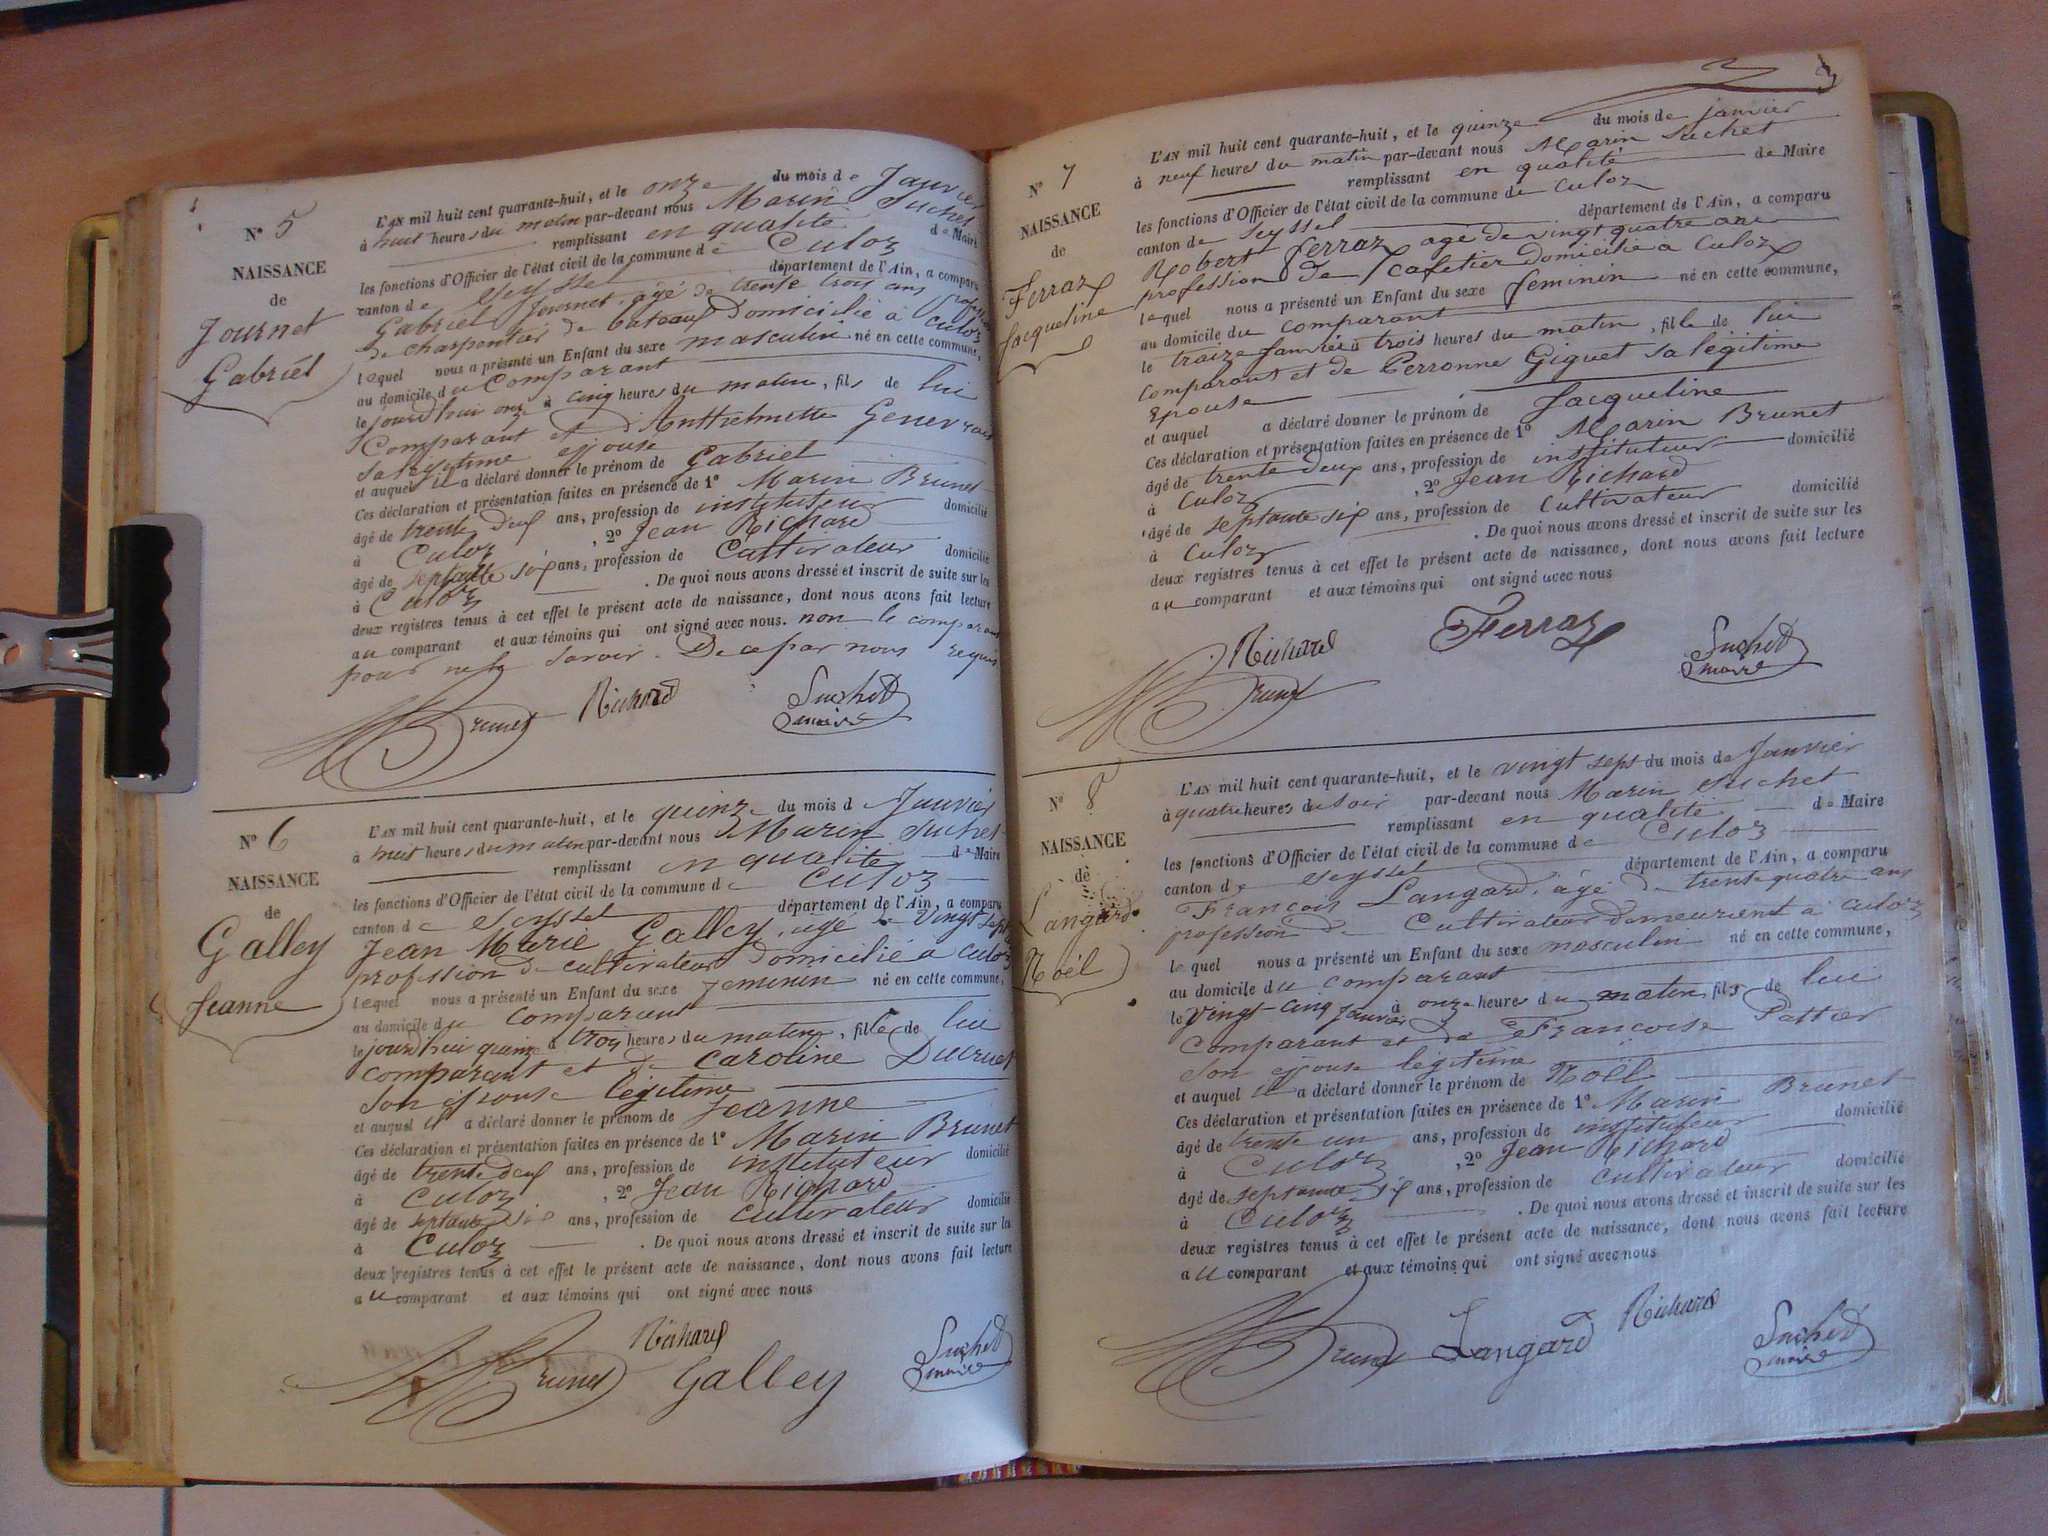 N° 5
NAISSANCE
de
Journet
Gabriel
L'AN mil huit cent quarante-huit, et le onze du mois de Janvier
à huit heures du matin par-devant nous Marin Suchet
remplissant en qualité de Maire
les fonctions d'Officier de l'état civil de la commune de Culoz
canton de Seyssel département de l'Ain, a comparu
Gabriel Journet, âgé de trente trois ans profession
de charpentier de bateaux Domicilié à Culoz
lequel nous a présenté un Enfant du sexe masculin né en cette commune,
au domicile du Comparant
le jourd'hui onze à cinq heures du matin, fils de lui
Comparant et d'Anthelmette
sa légitime épouse
et auquel il a déclaré donner le prénom de Gabriel
Ces déclaration et présentation faites en présence de 1° Marin Brunet
âgé de trente deux ans, profession de instituteur domicilié
à Culoz , 2° Jean Richard
âgé de septante six ans, profession de Cultivateur domicilié
à Culoz . De quoi nous avons dressé et inscrit de suite sur les
deux registres tenus à cet effet le présent acte de naissance, dont nous avons fait lecture
au comparant et aux témoins qui ont signé avec nous. non le comparant
pour ne savoir. De ce par nous requis
Brunet Richard Suchet
maire
N° 6
NAISSANCE
de
Galley
Jeanne
L'AN mil huit cent quarante-huit, et le quinze du mois d Janvier
à huit heures du matin par-devant nous Marin Suchet
remplissant en qualité de Maire
les fonctions d'Officier de l'état civil de la commune de Culoz
canton de Seyssel département de l'Ain, a comparu
Jean Marie Galley, âgé de vingt sept
profession de cultivateur Domicilié à Culoz
lequel nous a présenté un Enfant du sexe feminin né en cette commune,
au domicile du comparant
le jourd'hui quinze à trois heures du matin, fille de lui
comparant et de Caroline Ducruet
son épouse légitime
et auquel il a déclaré donner le prénom de Jeanne
Ces déclaration et présentation faites en présence de 1° Marin Brunet
âgé de trente deux ans, profession de instituteur domicilié
à Culoz , 2° Jean Richard
âgé de septante six ans, profession de cultivateur domicilié
à Culoz . De quoi nous avons dressé et inscrit de suite sur les
deux registres tenus à cet effet le présent acte de naissance, dont nous avons fait lecture
au comparant et aux témoins qui ont signé avec nous
Brunet Richard Galley Suchet
maire
N° 7
NAISSANCE
de
Ferraz
Jacqueline
L'AN mil huit cent quarante-huit, et le quinze du mois de janvier
à neuf heures du matin par-devant nous Marin Suchet
remplissant en qualité de Maire
les fonctions d'Officier de l'état civil de la commune de Culoz
canton de Seyssel département de l'Ain, a comparu
Robert Ferraz agé de vingt quatre ans
profession de cafetier domicilié a Culoz
lequel nous a présenté un Enfant du sexe feminin né en cette commune,
au domicile du comparant
le traize janvier à trois heures du matin, fille de lui
comparant et de Perronne Giguet sa legitime
Epouse
et auquel a déclaré donner le prénom de Jacqueline
Ces déclaration et présentation faites en présence de 1° Marin Brunet
âgé de trente deux ans, profession de instituteur domicilié
à Culoz , 2° Jean Richard
âgé de septante six ans, profession de Cultivateur domicilié
à Culoz . De quoi nous avons dressé et inscrit de suite sur les
deux registres tenus à cet effet le présent acte de naissance, dont nous avons fait lecture
au comparant et aux témoins qui ont signé avec nous
Brunet Richard Ferraz Suchet
maire
N° 8
NAISSANCE
de
Langard
Noél
L'AN mil huit cent quarante-huit, et le vingt sept du mois de Janvier
à quatre heures du soir par-devant nous Marin Suchet
remplissant en qualité de Maire
les fonctions d'Officier de l'état civil de la commune de Culoz
canton de Seyssel département de l'Ain, a comparu
François Langard, âgé de trente quatre ans
profession de Cultivateur demeurent à Culoz
lequel nous a présenté un Enfant du sexe masculin né en cette commune,
au domicile du comparant
le vingt-cinq janvier à onze heures du matin fils de lui
comparant et de Francoise Pottier
son épouse légitime
et auquel il a déclaré donner le prénom de Noël
Ces déclaration et présentation faites en présence de 1° Marin Brunet
âgé de trente un ans, profession de instituteur domicilié
à Culoz , 2° Jean Richard
âgé de septante six ans, profession de cultivateur domicilié
à Culoz . De quoi nous avons dressé et inscrit de suite sur les
deux registres tenus à cet effet le présent acte de naissance, dont nous avons fait lecture
au comparant et aux témoins qui ont signé avec nous
Brunet Langard Richard Suchet
maire